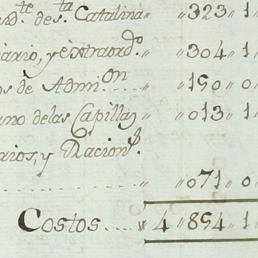 nd.te de S.ta Catalina " 323 " 1
iario, y extraord.o " " 304 " 1
os de Admi.on .... " " 190 " 0
ano de las Capillas " " 013 " 1
arios, y Racion.s
.................. " " 071 " 0
Costos .... " 4 " 894 " 1